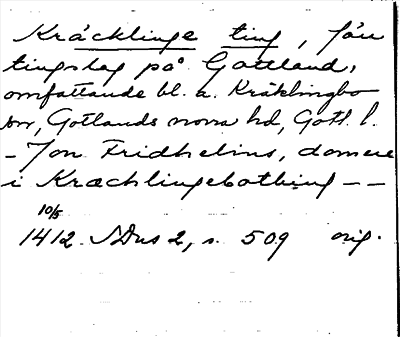 Kräcklinge ting, före
tingslag på Gottland,
omfattande bl. a. Kräklingbo
sn, Gotlands norra hd, Gotl. l.
- Jon Fridhelms, domere
i Kræchlingebothing --
10/5
1412. SDns 2, s. 509 orig.